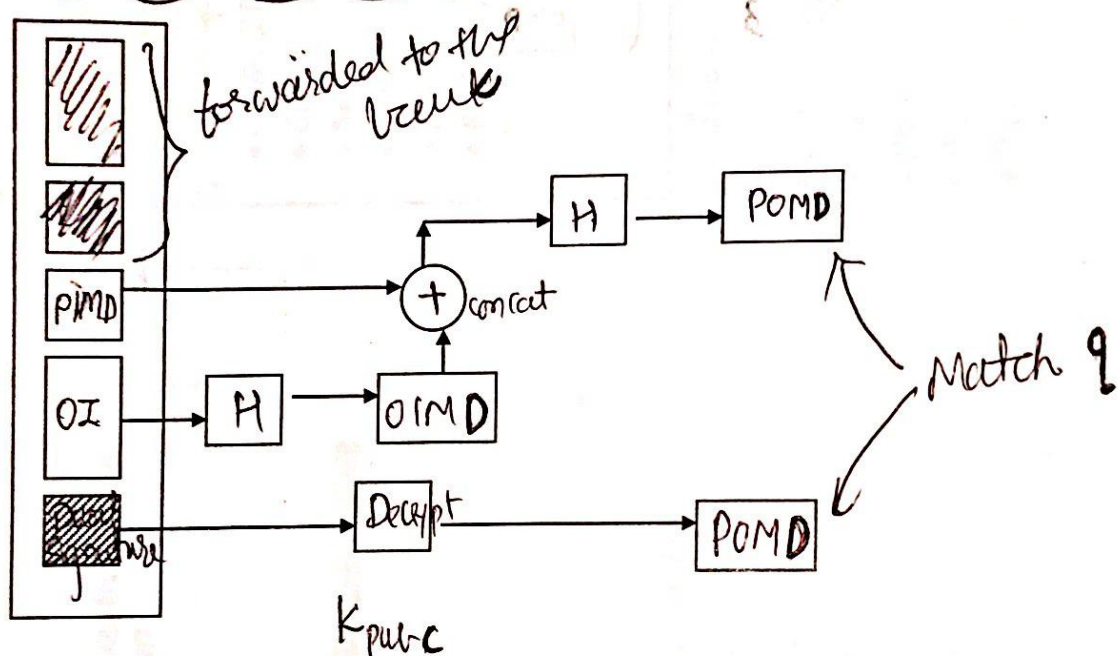 forwarded to the
bank
H
POMD
PIMD
+
concat
Match ?
OI
H
OIMD
Dual
Signature
Decrypt
POMD
Kpub-c